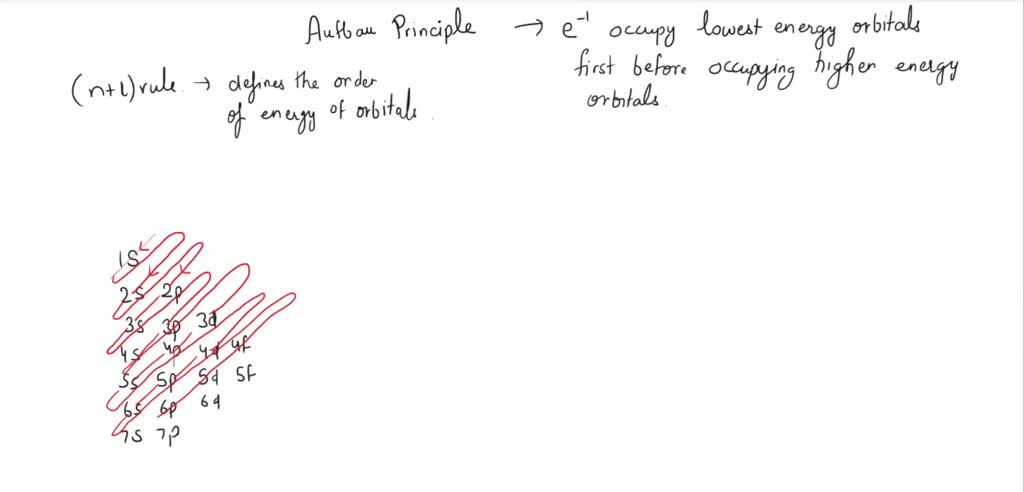 Aufbau Principle → e⁻¹ occupy lowest energy orbitals
first before occupying higher energy
orbitals.
(n+l) rule → defines the order
of energy of orbitals.
1s
2s 2p
3s 3p 3d
4s 4p 4d 4f
5s 5p 5d 5f
6s 6p 6d
7s 7p